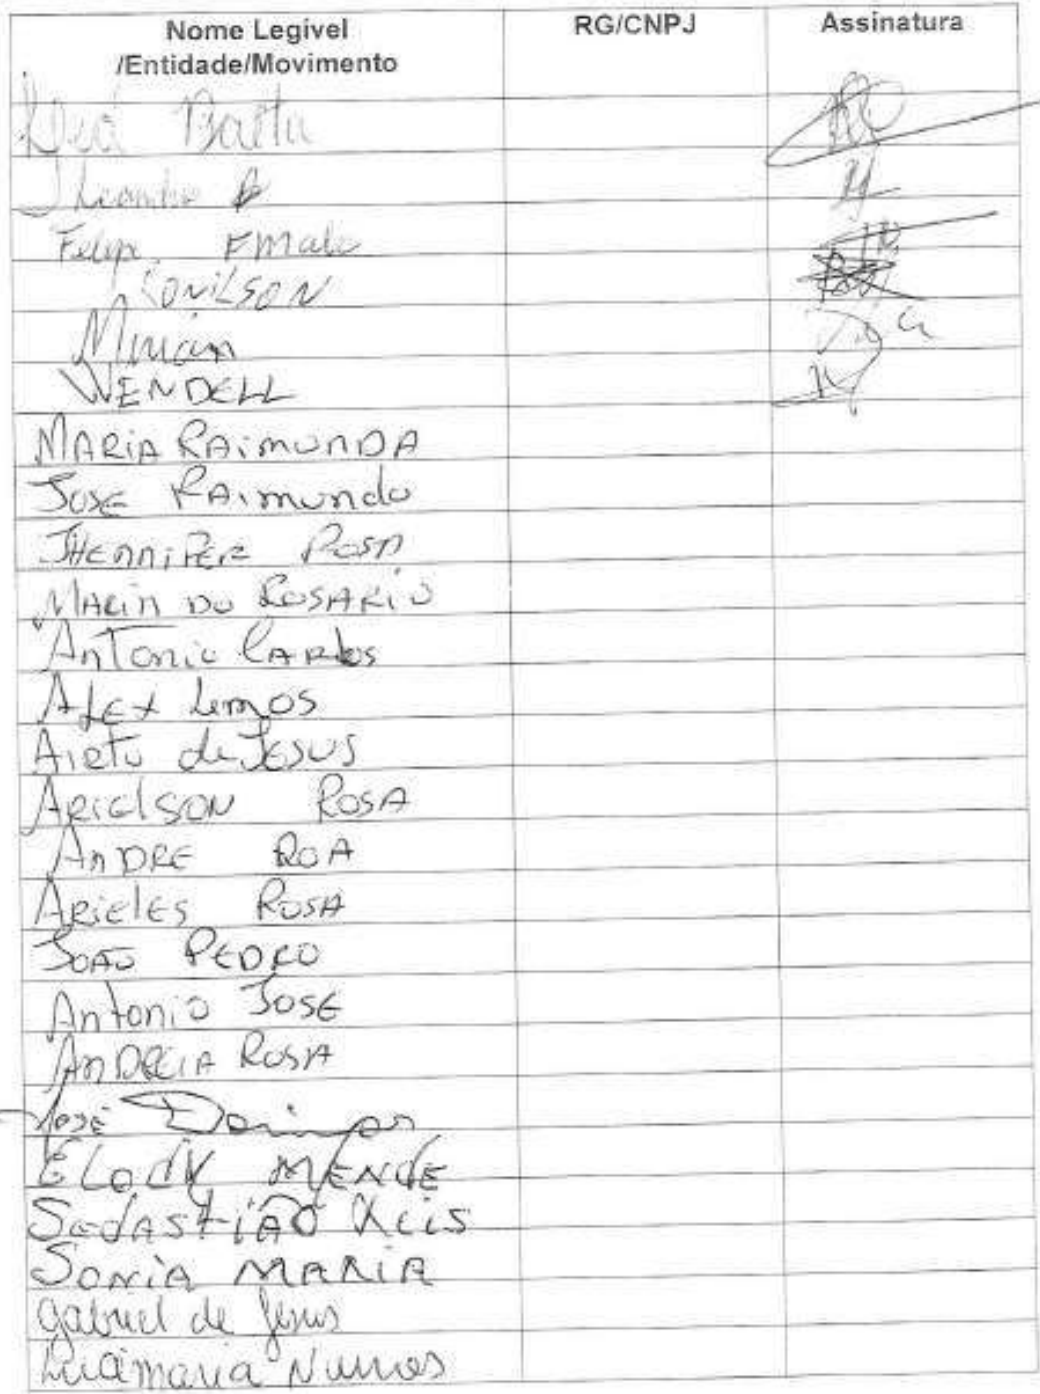 Nome Legível
/Entidade/Movimento
RG/CNPJ
Assinatura
Felipe
RONILSON
Mirian
WENDELL
MARIA RAIMUNDA
JOSE RAIMUNDO
JHENNIFER ROSA
MARIA DO ROSARIO
Antonio Carlos
ALEX Lemos
de JESUS
ARIELSON ROSA
ANDRE ROA
ARIELES ROSA
JOÃO PEDRO
Antonio JOSE
ANDREIA ROSA
JOSÉ
ELODY MENDE
SEDASTIÃO REIS
SONIA MARIA
gabriel de Jesus
Lucimaria Nunes